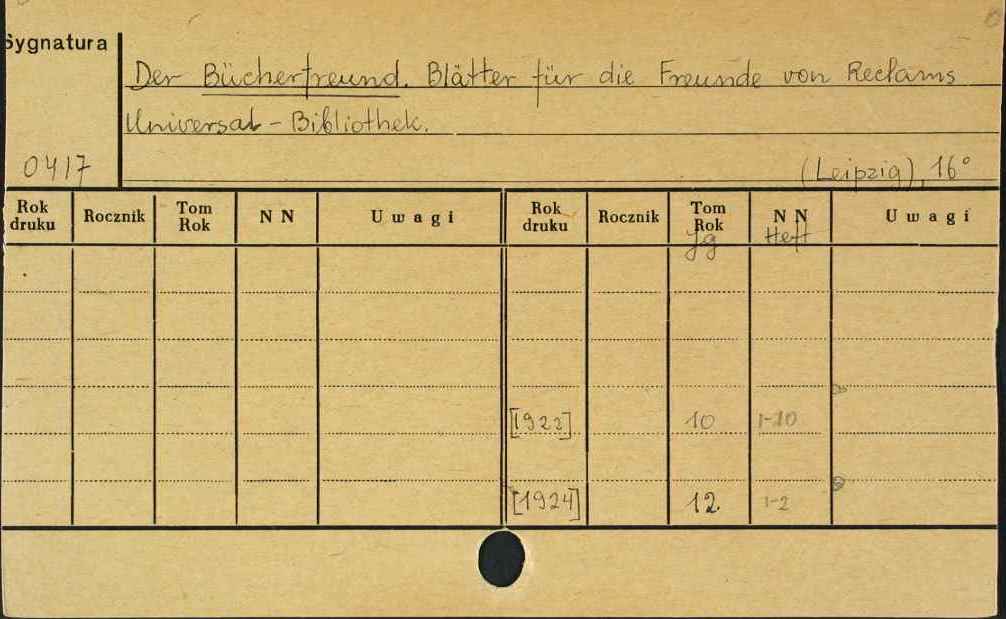 Sygnatura
Der Bücherfreund. Blätter für die Freunde von Reclams
Universal-Bibliothek.
0417
(Leipzig), 16°
Rok druku Rocznik Tom Rok N N Uwagi Rok druku Rocznik Tom Rok N N Uwagi
Jg Heft
[1922] 10 1-10
[1924] 12. 1-2